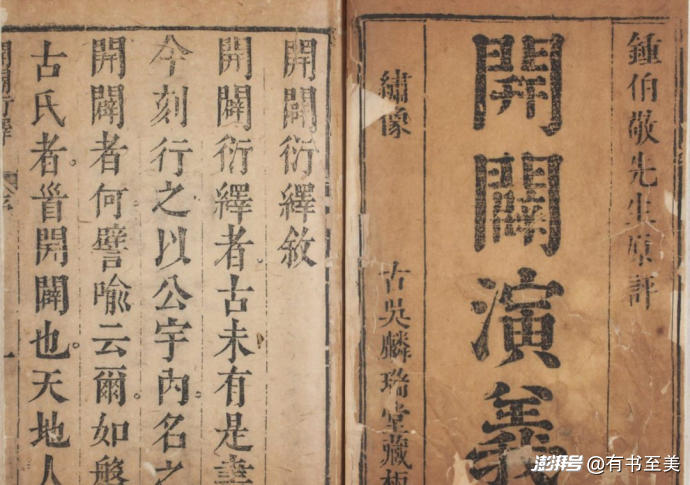 鍾伯敬先生原評
開闢演義
繡像
古吳麟瑞堂藏板
開闢衍繹敘
開闢衍繹者古未有是書
今刻行之以公宇內名之
開闢者何譬喻云爾如盤
古氏者首開闢也天地人
開闢衍繹
澎湃号@有书至美